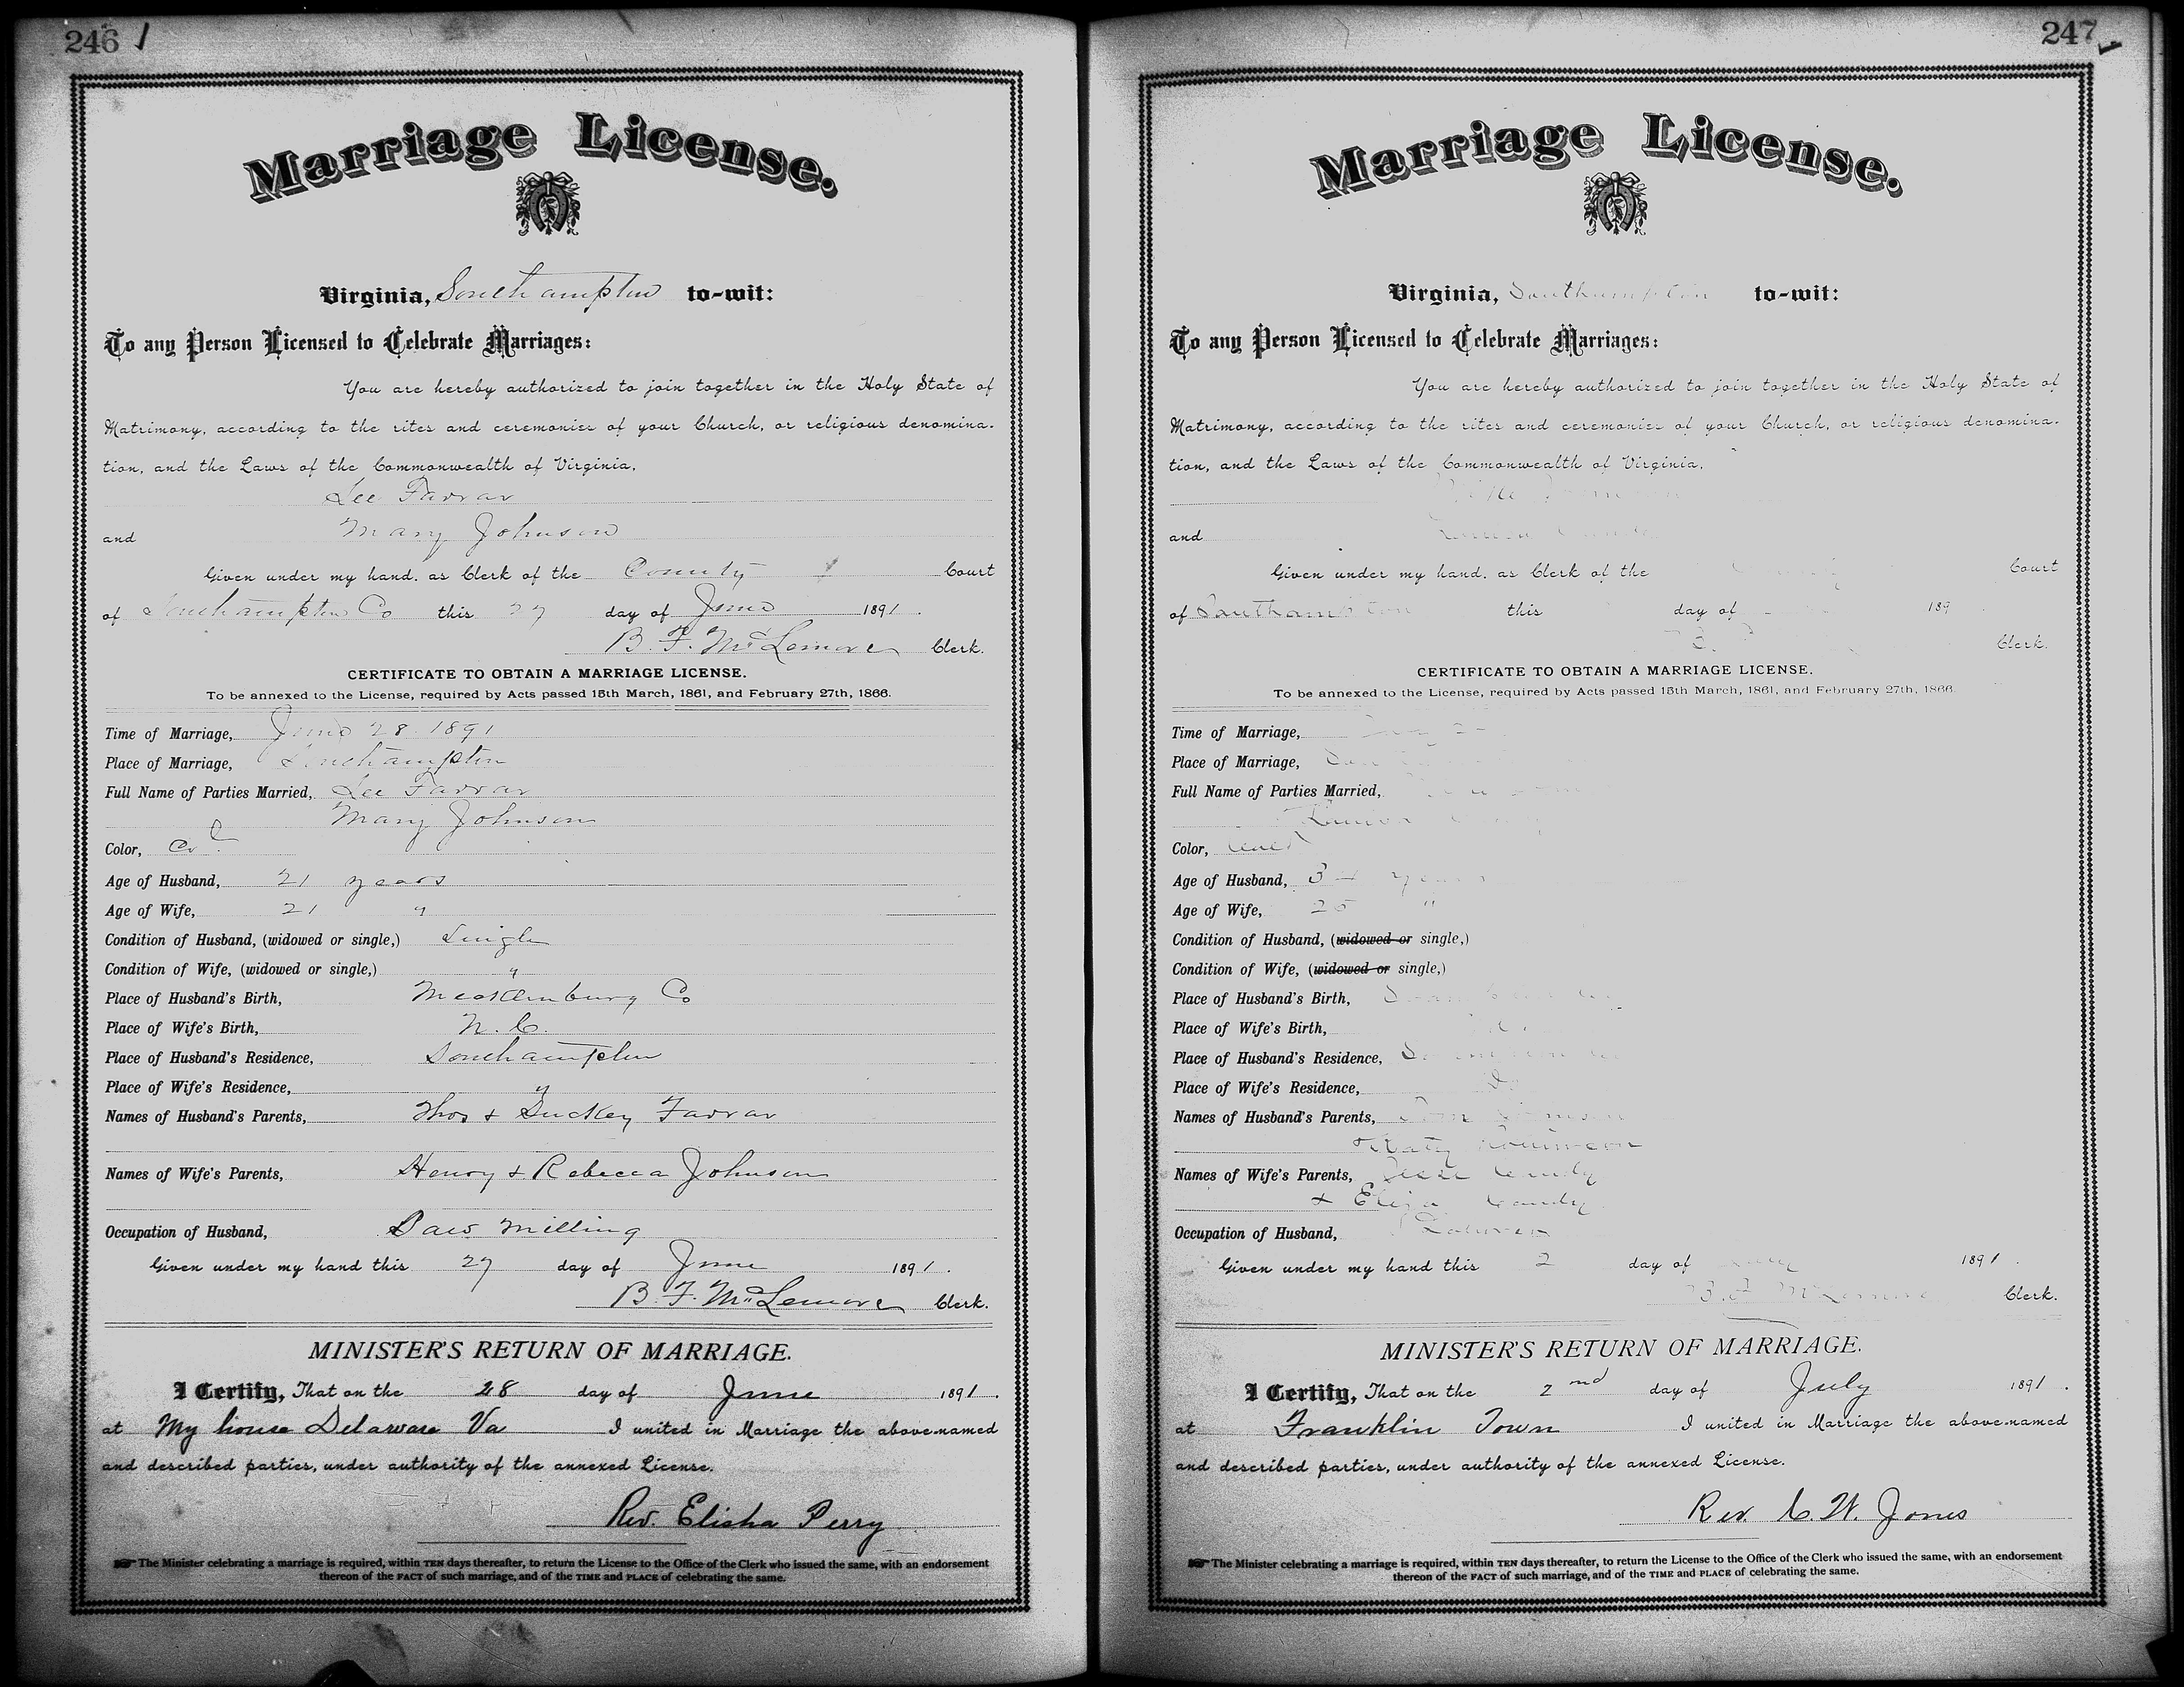 246
Marriage License.
Virginia, Southampton to-wit:
To any Person Licensed to Celebrate Marriages:
You are hereby authorized to join together in the Holy State of
Matrimony, according to the rites and ceremonies of your Church, or religious denomina-
tion, and the Laws of the Commonwealth of Virginia,
Lee Farrar
and Mary Johnson
Given under my hand, as Clerk of the County Court
of Southampton Co this 27 day of June 1891.
B. F. McLemore Clerk.
CERTIFICATE TO OBTAIN A MARRIAGE LICENSE.
To be annexed to the License, required by Acts passed 15th March, 1861, and February 27th, 1866.
Time of Marriage, June 28 1891
Place of Marriage, Southampton
Full Name of Parties Married, Lee Farrar
Mary Johnson
Color, Col
Age of Husband, 21 years
Age of Wife, 21 "
Condition of Husband, (widowed or single,) Single
Condition of Wife, (widowed or single,) "
Place of Husband's Birth, Mecklenburg Co
Place of Wife's Birth, N. C.
Place of Husband's Residence, Southampton
Place of Wife's Residence, "
Names of Husband's Parents, Thos & Suckey Farrar
Names of Wife's Parents, Henry & Rebecca Johnson
Occupation of Husband, Saw Milling
Given under my hand this 27 day of June 1891.
B. F. McLemore Clerk.
MINISTER'S RETURN OF MARRIAGE.
I Certify, That on the 28 day of June 1891.
at My house Delaware Va I united in Marriage the above-named
and described parties, under authority of the annexed License.
Rev. Elisha Perry
The Minister celebrating a marriage is required, within TEN days thereafter, to return the License to the Office of the Clerk who issued the same, with an endorsement
thereon of the FACT of such marriage, and of the TIME and PLACE of celebrating the same.
247
Marriage License.
Virginia, Southampton to-wit:
To any Person Licensed to Celebrate Marriages:
You are hereby authorized to join together in the Holy State of
Matrimony, according to the rites and ceremonies of your Church, or religious denomina-
tion, and the Laws of the Commonwealth of Virginia,
and
Given under my hand, as Clerk of the Court
of Southampton this day of 189
Clerk.
CERTIFICATE TO OBTAIN A MARRIAGE LICENSE.
To be annexed to the License, required by Acts passed 15th March, 1861, and February 27th, 1866.
Time of Marriage,
Place of Marriage,
Full Name of Parties Married,
Color,
Age of Husband, years
Age of Wife, 25 "
Condition of Husband, (widowed or single,)
Condition of Wife, (widowed or single,)
Place of Husband's Birth,
Place of Wife's Birth,
Place of Husband's Residence,
Place of Wife's Residence,
Names of Husband's Parents,
& Katy
Names of Wife's Parents, Jesse
& Eliza
Occupation of Husband,
Given under my hand this 2 day of July 1891.
B. F. McLemore Clerk.
MINISTER'S RETURN OF MARRIAGE.
I Certify, That on the 2nd day of July 1891.
at Franklin Town I united in Marriage the above-named
and described parties, under authority of the annexed License.
Rev. C. W. Jones
The Minister celebrating a marriage is required, within TEN days thereafter, to return the License to the Office of the Clerk who issued the same, with an endorsement
thereon of the FACT of such marriage, and of the TIME and PLACE of celebrating the same.